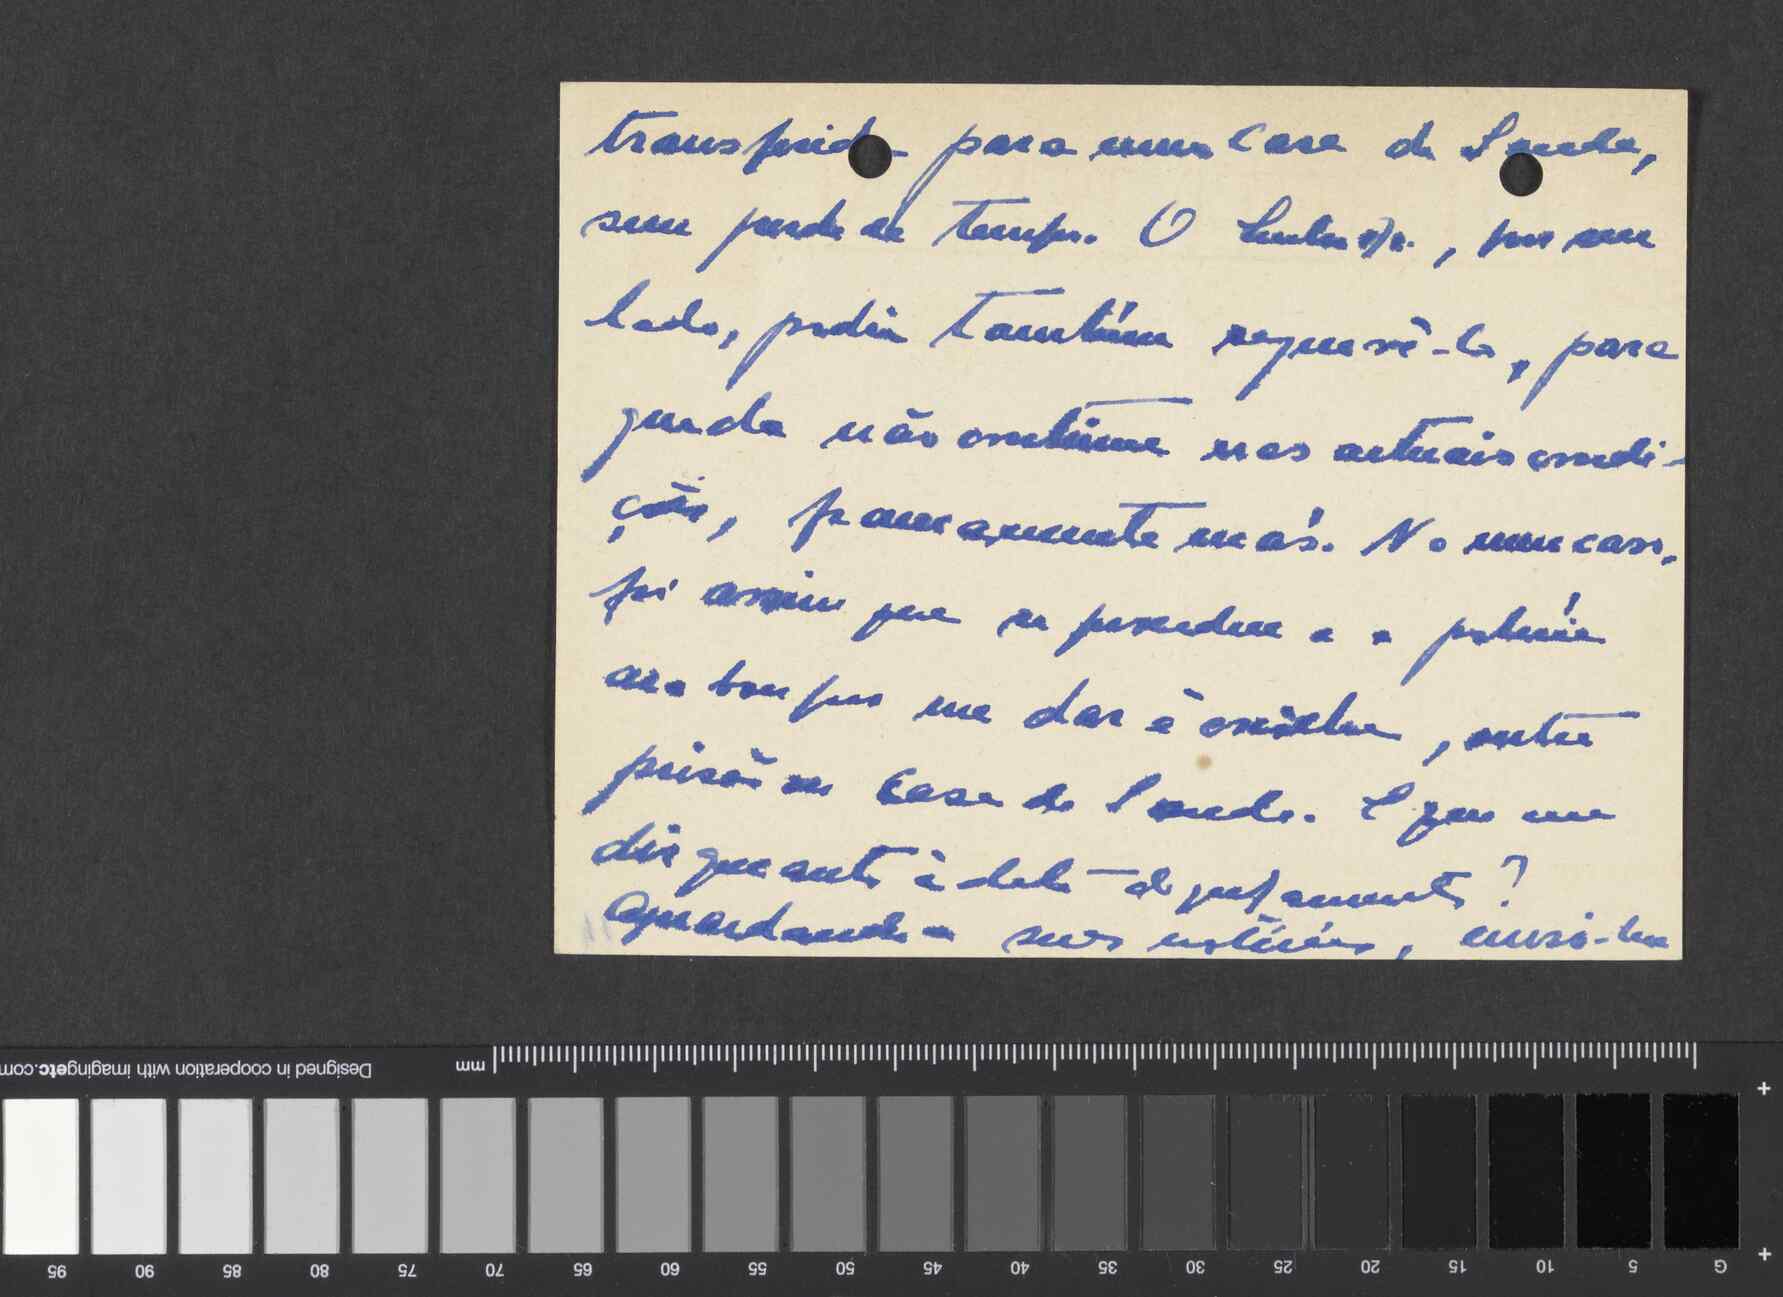 transferida para uma Casa de Saude,
sem perda de tempo. O senhor Dr., por seu
lado, podia também requerê-lo, para
que ela não continue nas actuais condi-
ções, francamente más. No meu caso,
foi assim que se procedeu e a polícia
acabou por me dar à escolha, entre
prisão ou Casa de Saude. E que me
diz quanto à data de julgamento?
Aguardando as suas notícias, envio-lhe
Designed in cooperation with imagingetc.com
mm
95 90 85 80 75 70 65 60 55 50 45 40 35 30 25 20 15 10 5 G